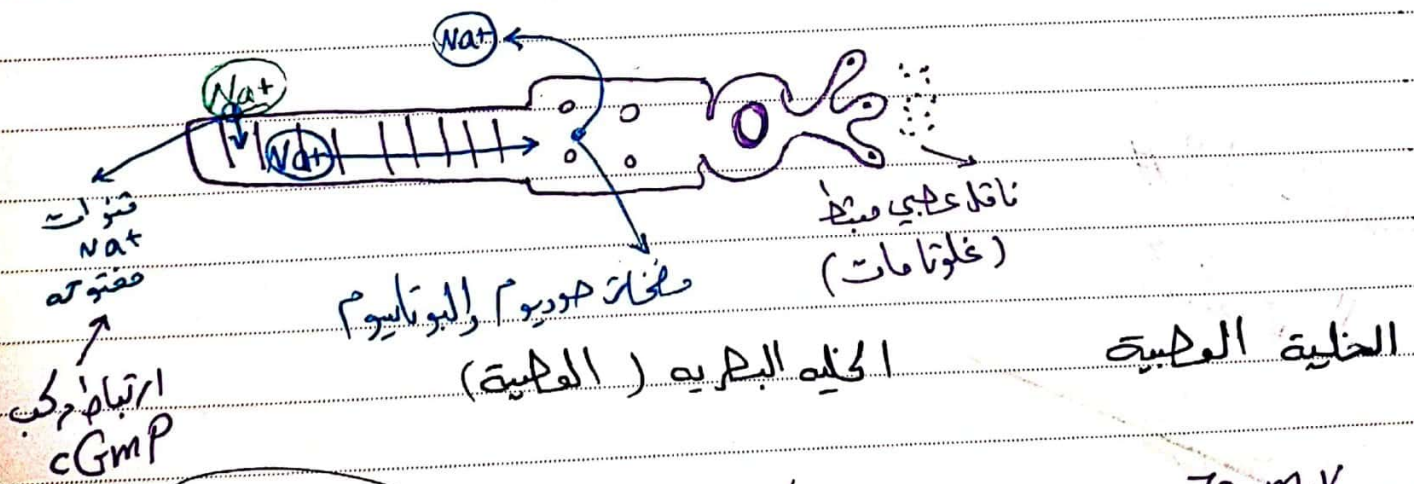 Na+
Na+
Na+
قنوات
Na+
مفتوحة
ارتباط مركب
cGmP
مضخات صوديوم والبوتاسيوم
ناقل عصبي مبثط
(غلوتامات)
الخليه البصريه (العصية)
الخلية العصبية